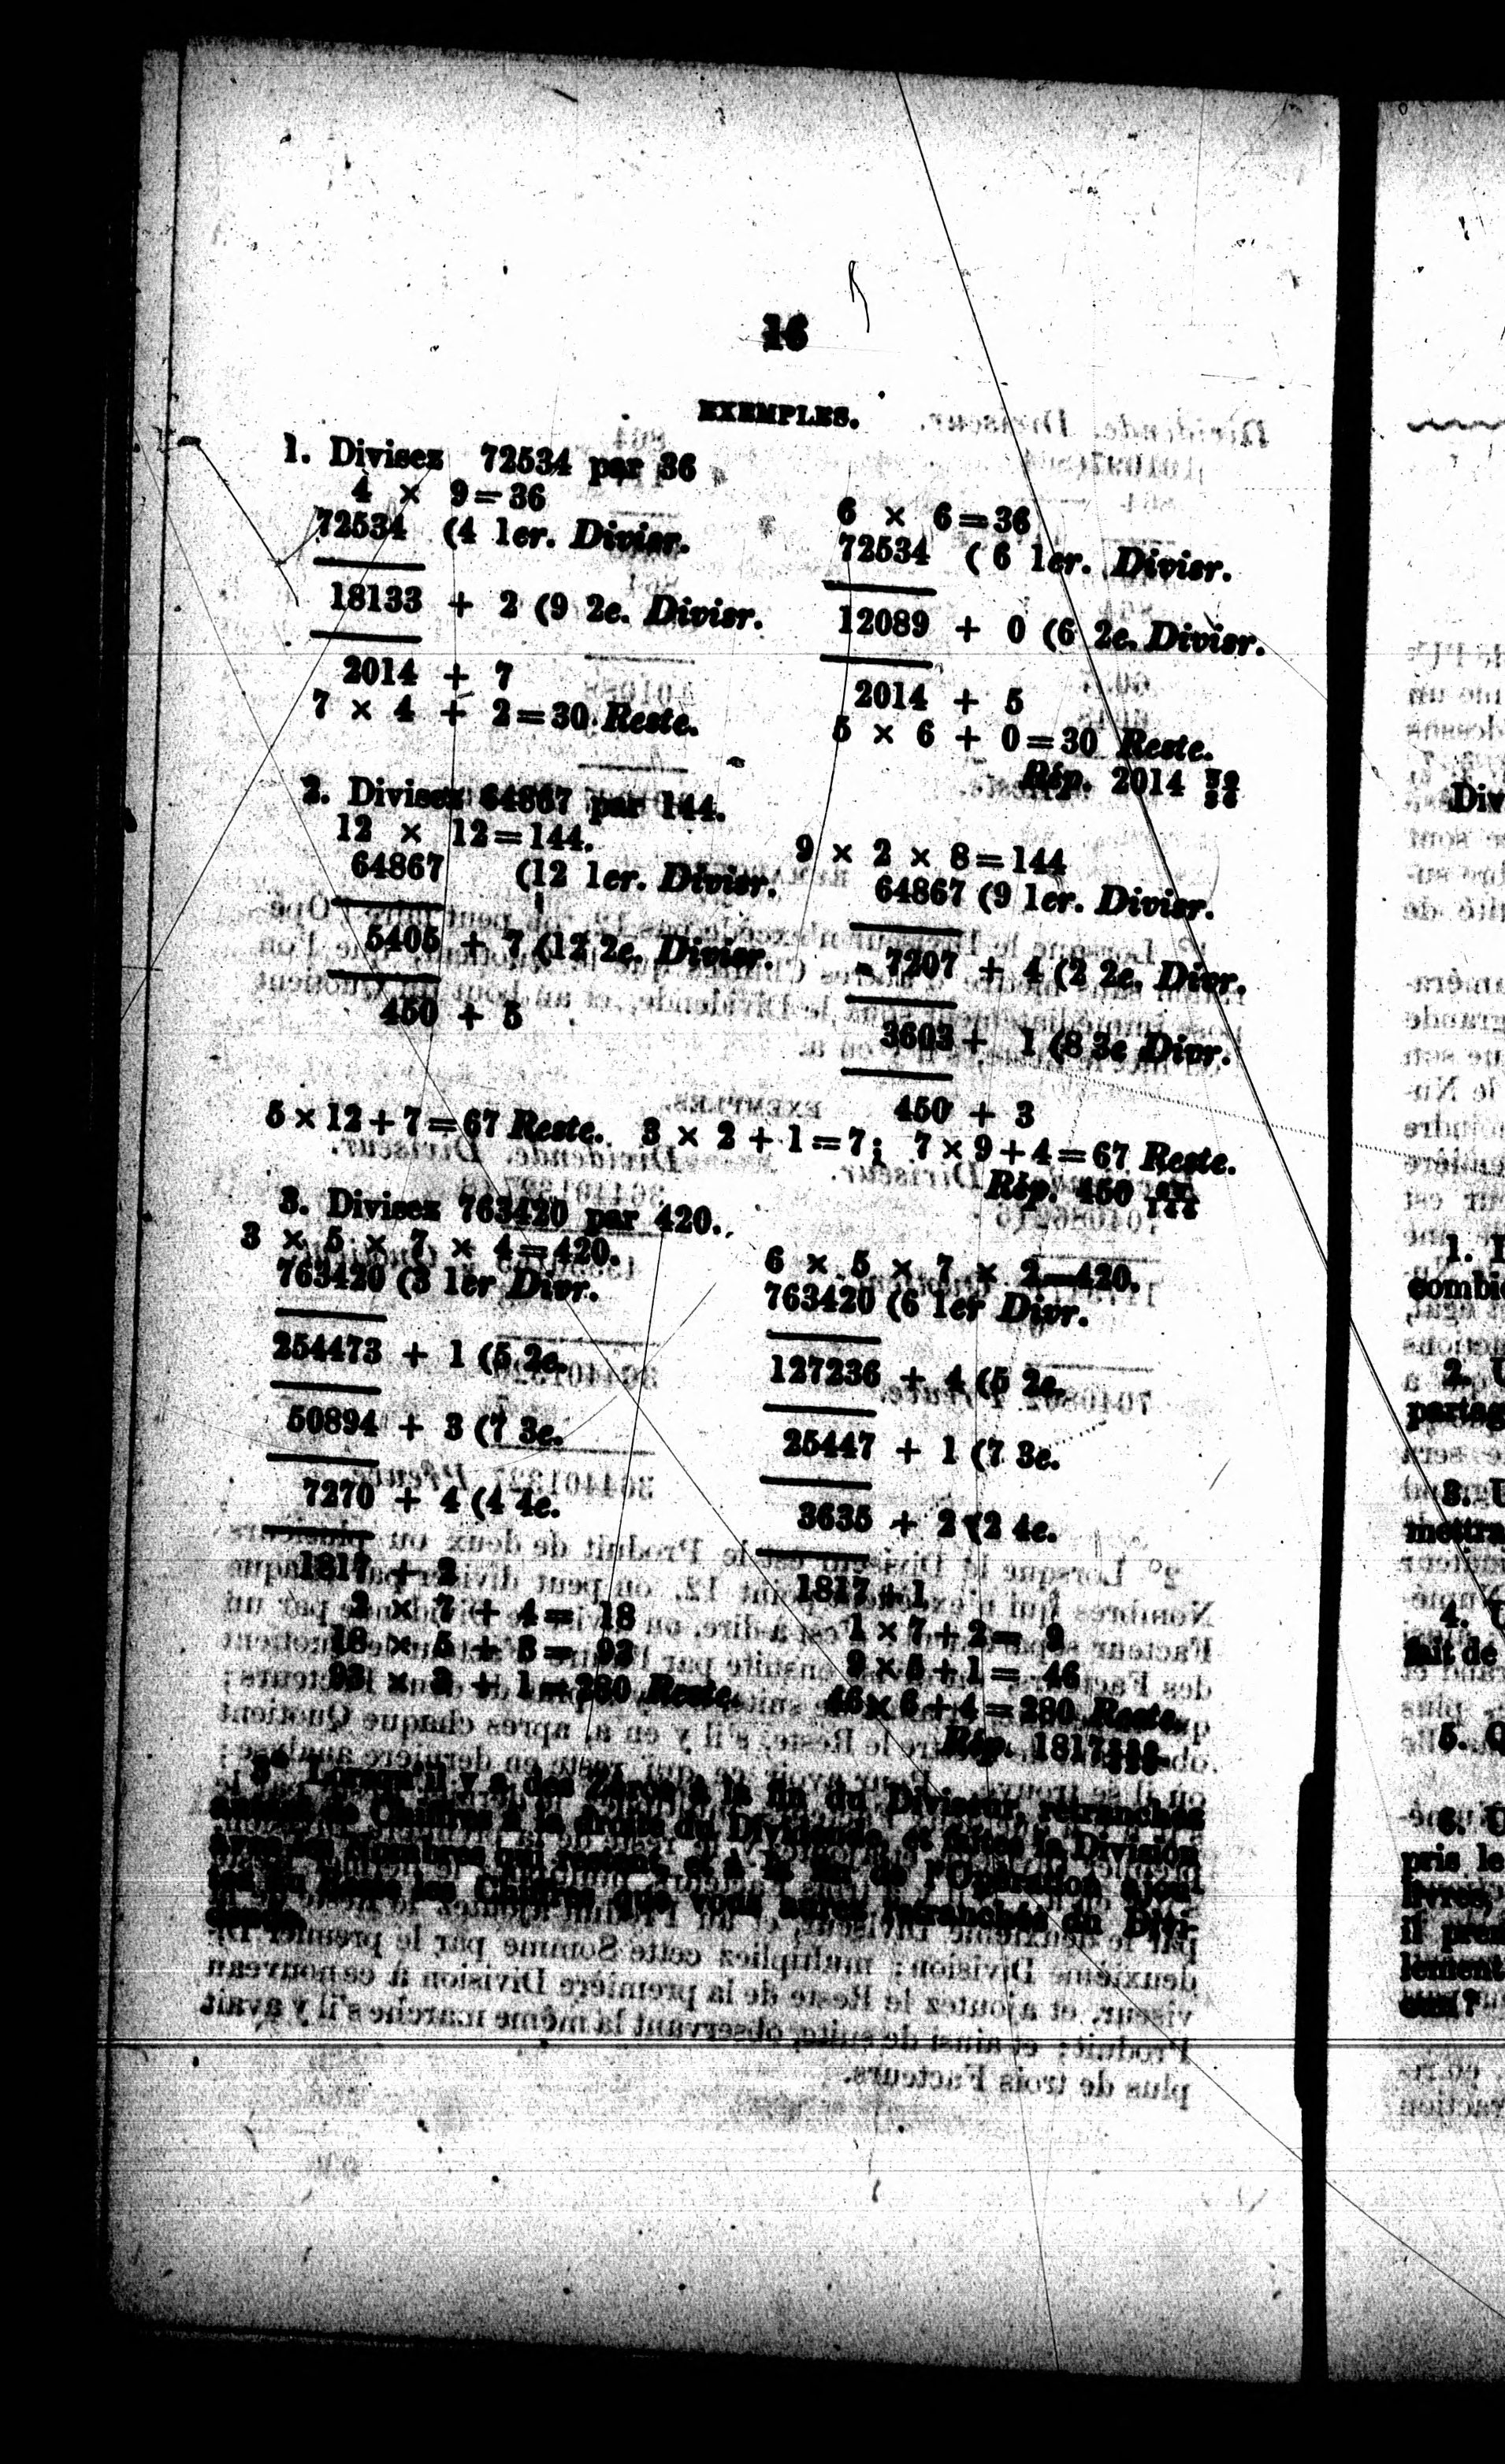 16
EXEMPLES.
1. Divisez 72534 par 36
4 × 9=36
72534 (4 1er. Divisr.
18133 + 2 (9 2e. Divisr.
2014 + 7
7 × 4 + 2=30 Reste.
6 × 6=36
72534 (6 1er. Divisr.
12089 + 0 (6 2e. Divisr.
2014 + 5
5 × 6 + 0=30 Reste.
Rép. 2014 30/36
2. Divisez 64867 par 144.
12 × 12=144.
64867 (12 1er. Divisr.
5405 + 7 (12 2e. Divisr.
450 + 5
9 × 2 × 8=144
64867 (9 1er. Divisr.
7207 + 4 (2 2e. Divr.
3603 + 1 (8 3e Divr.
450 + 3
5×12+7=67 Reste. 3 × 2+1=7; 7×9+4=67 Reste.
Rép. 450 67/144
3. Divisez 763420 par 420.
3 × 5 × 7 × 4=420.
763420 (3 1er Divr.
254473 + 1 (5 2e.
50894 + 3 (7 3e.
7270 + 4 (4 4e.
1817 + 2
2 × 7 + 4= 18
18 × 5 + 3= 93
93 × 3 + 1=280 Reste.
6 × 5 × 7 × 2=420.
763420 (6 1er Divr.
127236 + 4 (5 2e.
25447 + 1 (7 3e.
3635 + 2 (2 4e.
1817+1
1×7+2= 9
9×5+1= 46
46×6+4=280 Reste.
Rép. 1817
3° Lorsqu'il y a des Zéros à la fin du Diviseur, retranchez
autant de Chiffres à la droite du Dividende, et faites la Division
avec les Nombres qui restent, et à la fin de l'Opération ajou-
tez au Reste les Chiffres que vous aurez retranchés du Divi-
dende.
Div
1.
combi
2.
partag
3.
mettra
4.
fait de
5. Q
6.
pris le
livres,
il pren
lement